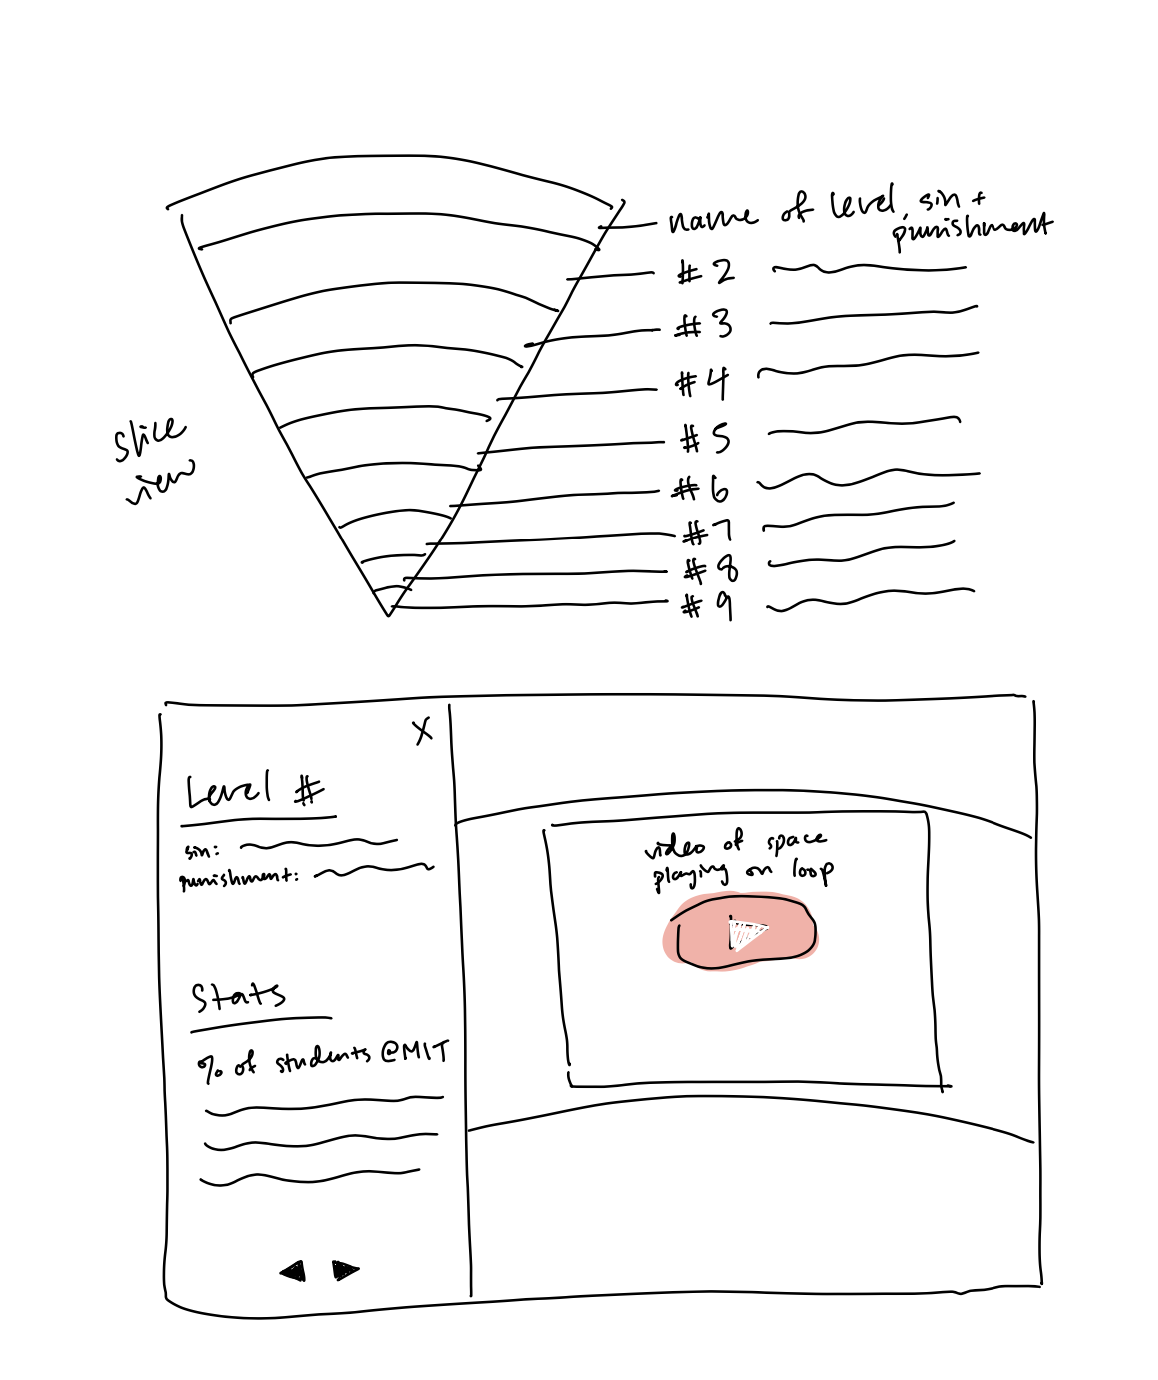 name of level, sin +
punishment
#2
#3
#4
#5
#6
#7
#8
#9
slice
view
X
Level #
sin:
punishment:
Stats
% of students @MIT
video of space
playing on loop